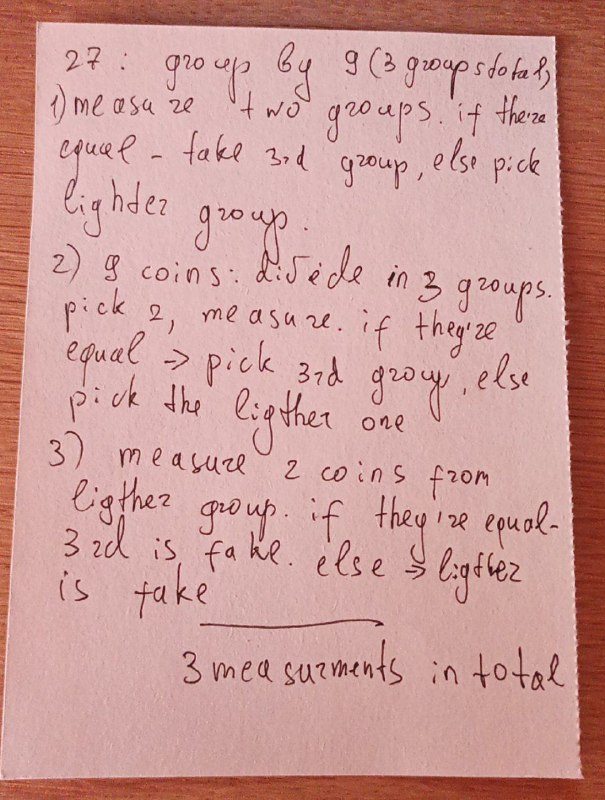 27: group by 9 (3 groups total)
1) measure two groups. if they're
equal - take 3rd group, else pick
lighter group.
2) 9 coins: divide in 3 groups.
pick 2, measure. if they're
equal => pick 3rd group, else
pick the ligther one
3) measure 2 coins from
ligther group. if they're equal-
3rd is fake. else => ligther
is fake
3 measurments in total